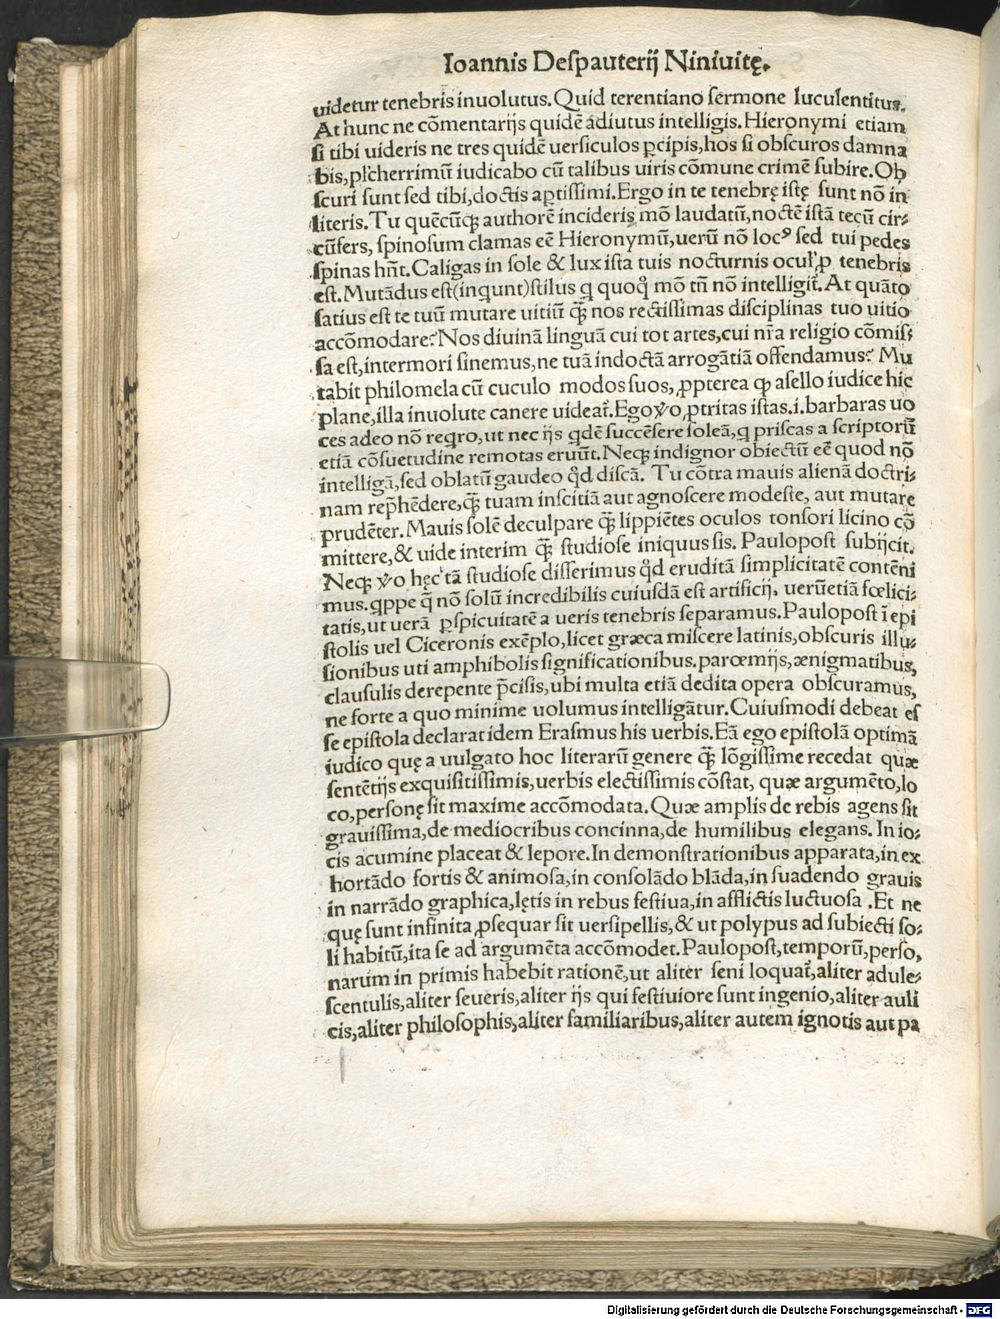 Ioannis Despauterij Niniuitę.
uidetur tenebris inuolutus. Quid terentiano sermone luculentitus.
At hunc ne cõmentarijs quidẽ adiutus intelligis. Hieronymi etiam
si tibi uideris ne tres quidẽ uersiculos ꝑcipis, hos si obscuros damna
bis, plcherrimũ iudicabo cũ talibus uiris cõmune crimẽ subire. Ob
scuri sunt sed tibi, doctis aptissimi. Ergo in te tenebrę istę sunt nõ in
literis. Tu quẽcũqꝫ authorẽ incideris mõ laudatũ, noctẽ istã tecũ cir⸗
cũfers, spinosum clamas eẽ Hieronymũ, uerũ nõ locꝰ sed tui pedes
spinas hñt. Caligas in sole & lux ista tuis nocturnis oculꝭ ꝓ tenebris
est. Mutãdus est (inqunt) stilus q quoqꝫ mõ tñ nõ intelligit̃. At quãto
satius est te tuũ mutare uitiũ q̃ꝫ nos rectissimas disciplinas tuo uitio
accõmodare? Nos diuinã linguã cui tot artes, cui nr̃a religio cõmis⸗
sa est, intermori sinemus, ne tuã indoctã arrogãtiã offendamus? Mu
tabit philomela cũ cuculo modos suos, ꝓpterea ꝙ asello iudice hic
plane, illa inuolute canere uideat̃. Ego ꝟo ꝓtritas istas .i. barbaras uo
ces adeo nõ reqro, ut nec ijs qdẽ succẽsere soleã, q priscas a scriptorũ
etiã cõsuetudine remotas eruũt. Neqꝫ indignor obiectũ eẽ quod nõ
intelligã, sed oblatũ gaudeo qd̃ discã. Tu cõtra mauis alienã doctri⸗
nam rep̃hẽdere, q̃ꝫ tuam inscitiã aut agnoscere modeste, aut mutare
prudẽter. Mauis solẽ deculpare q̃ꝫ lippiẽtes oculos tonsori licino cõ
mittere, & uide interim q̃ꝫ studiose iniquus sis. Paulopost subijcit.
Neqꝫ ꝟo hęc tã studiose disserimus qd̃ eruditã simplicitatẽ contẽni
mus. qppe q̃ nõ solũ incredibilis cuiusdã est artificij, uerũetiã fœlici⸗
tatis, ut uerã ꝑspicuitatẽ a ueris tenebris separamus. Paulopost ĩ epi
stolis uel Ciceronis exẽplo, licet græca miscere latinis, obscuris illu⸗
sionibus uti amphibolis significationibus. parœmijs, ænigmatibus,
clausulis derepente p̃cisis, ubi multa etiã dedita opera obscuramus,
ne forte a quo minime uolumus intelligãtur. Cuiusmodi debeat es
se epistola declarat idem Erasmus his uerbis. Eã ego epistolã optimã
iudico quę a uulgato hoc literarũ genere q̃ꝫ lõgissime recedat quæ
sentẽtijs exquisitissimis, uerbis electissimis cõstat, quæ argumẽto, lo
co, personę sit maxime accõmodata. Quæ amplis de rebis agens sit
grauissima, de mediocribus concinna, de humilibus elegans. In io⸗
cis acumine placeat & lepore. In demonstrationibus apparata, in ex
hortãdo fortis & animosa, in consolãdo blãda, in suadendo grauis
in narrãdo graphica, lętis in rebus festiua, in afflictis luctuosa. Et ne
quę sunt infinita ꝓsequar sit uersipellis, & ut polypus ad subiecti so⸗
li habitũ, ita se ad argumẽta accõmodet. Paulopost, temporũ, perso,
narum in primis habebit rationẽ, ut aliter seni loquat̃, aliter adule⸗
scentulis, aliter seueris, aliter ijs qui festiuiore sunt ingenio, aliter auli
cis, aliter philosophis, aliter familiaribus, aliter autem ignotis aut pa
Digitalisierung gefördert durch die Deutsche Forschungsgemeinschaft - DFG